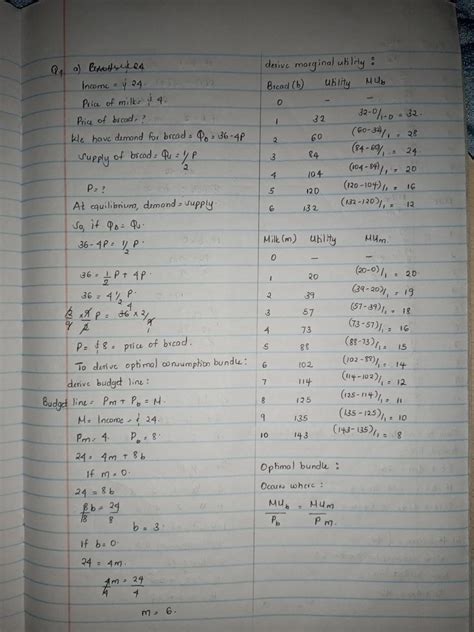 Q4 a)
Income = $ 24.
Price of milk = $ 4.
Price of bread = ?
We have demand for bread = QD = 36-4P
supply of bread = Qs = 1/2 P
P = ?
At equilibrium, demand = supply.
So, if QD = Qs
36-4P = 1/2 P.
36 = 1/2 P + 4P.
36 = 4 1/2 P
2/9 × 9/2 P = 36 × 2/9
P = $ 8 = price of bread.
To derive optimal consumption bundle:
derive budget line:
Budget line = Pm + Pb = M.
M = Income = $ 24.
Pm = 4. Pb = 8.
24 = 4m + 8b
If m = 0.
24 = 8b
8b/8 = 24/8
b = 3.
If b = 0.
24 = 4m.
4m/4 = 24/4
m = 6.
derive marginal utility :
Bread (b) Utility MUb
0 - -
1 32 32-0/1-0 = 32.
2 60 (60-32)/1 = 28
3 84 (84-60)/1 = 24
4 104 (104-84)/1 = 20
5 120 (120-104)/1 = 16
6 132 (132-120)/1 = 12
Milk (m) Utility MUm.
0 - -
1 20 (20-0)/1 = 20
2 39 (39-20)/1 = 19
3 57 (57-39)/1 = 18
4 73 (73-57)/1 = 16
5 88 (88-73)/1 = 15
6 102 (102-88)/1 = 14
7 114 (114-102)/1 = 12
8 125 (125-114)/1 = 11
9 135 (135-125)/1 = 10
10 143 (143-135)/1 = 8
Optimal bundle :
Occurs where :
MUb/Pb = MUm/Pm.